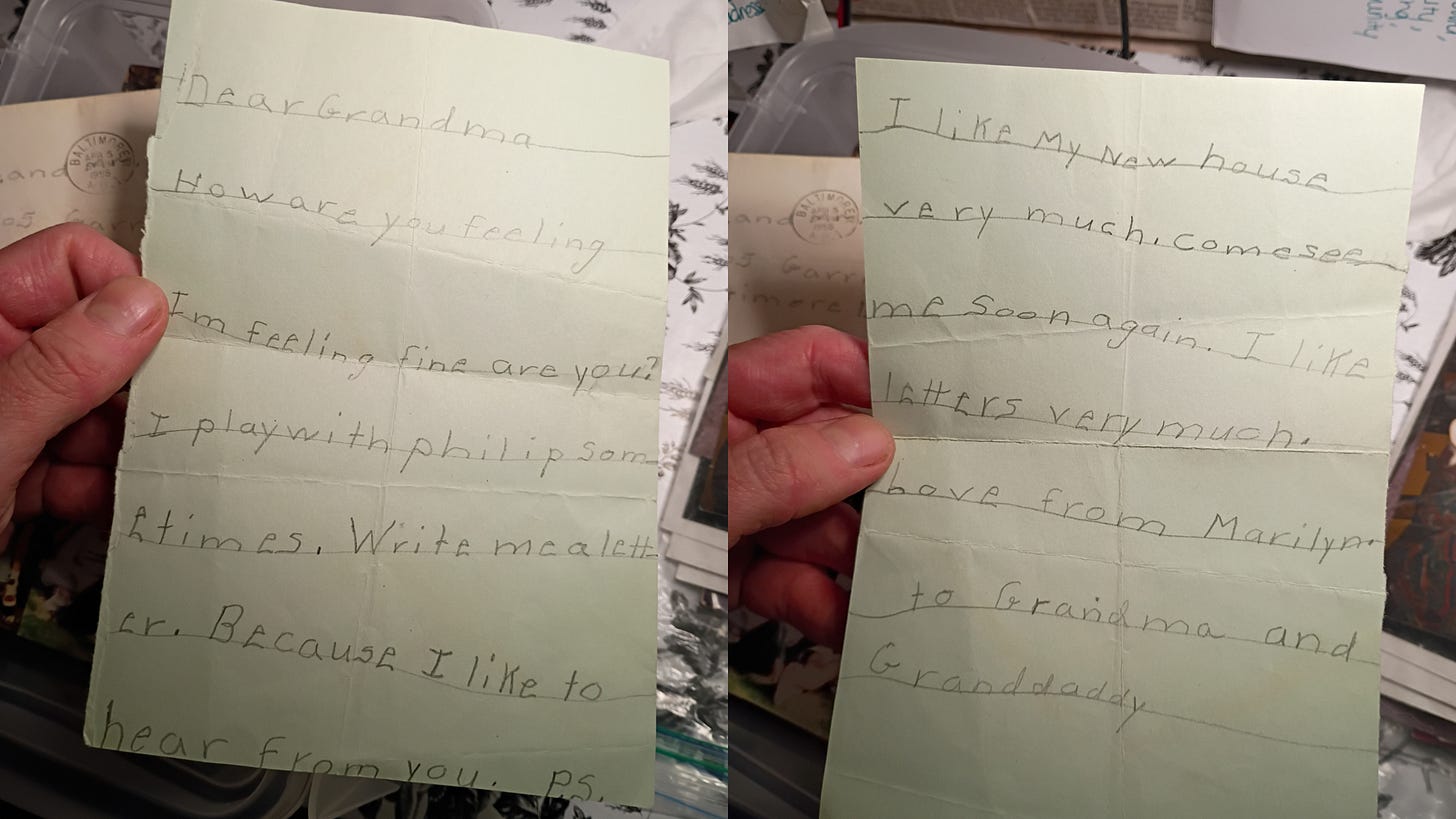 Dear Grandma
How are you feeling
Im feeling fine are you?
I play with philip som
etimes. Write me a lett
er. Because I like to
hear from you. P.S.
BALTIMORE
I like My New house
very much. come see
me soon again. I like
letters very much.
Love from Marilyn.
to Grandma and
Granddaddy
BALTIMORE